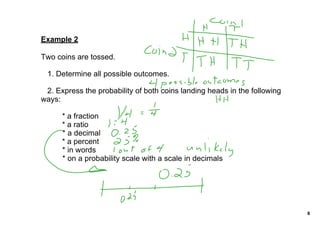 Coin 1
H T
Example 2
H HH TH
Coin 2 T TH TT
Two coins are tossed.
1. Determine all possible outcomes.
4 possible outcomes
2. Express the probability of both coins landing heads in the following
ways:
HH
* a fraction 1/4 = 1/4
* a ratio 1:4
* a decimal 0.25
* a percent 25%
* in words 1 out of 4 unlikely
* on a probability scale with a scale in decimals
0.25
0.25
8